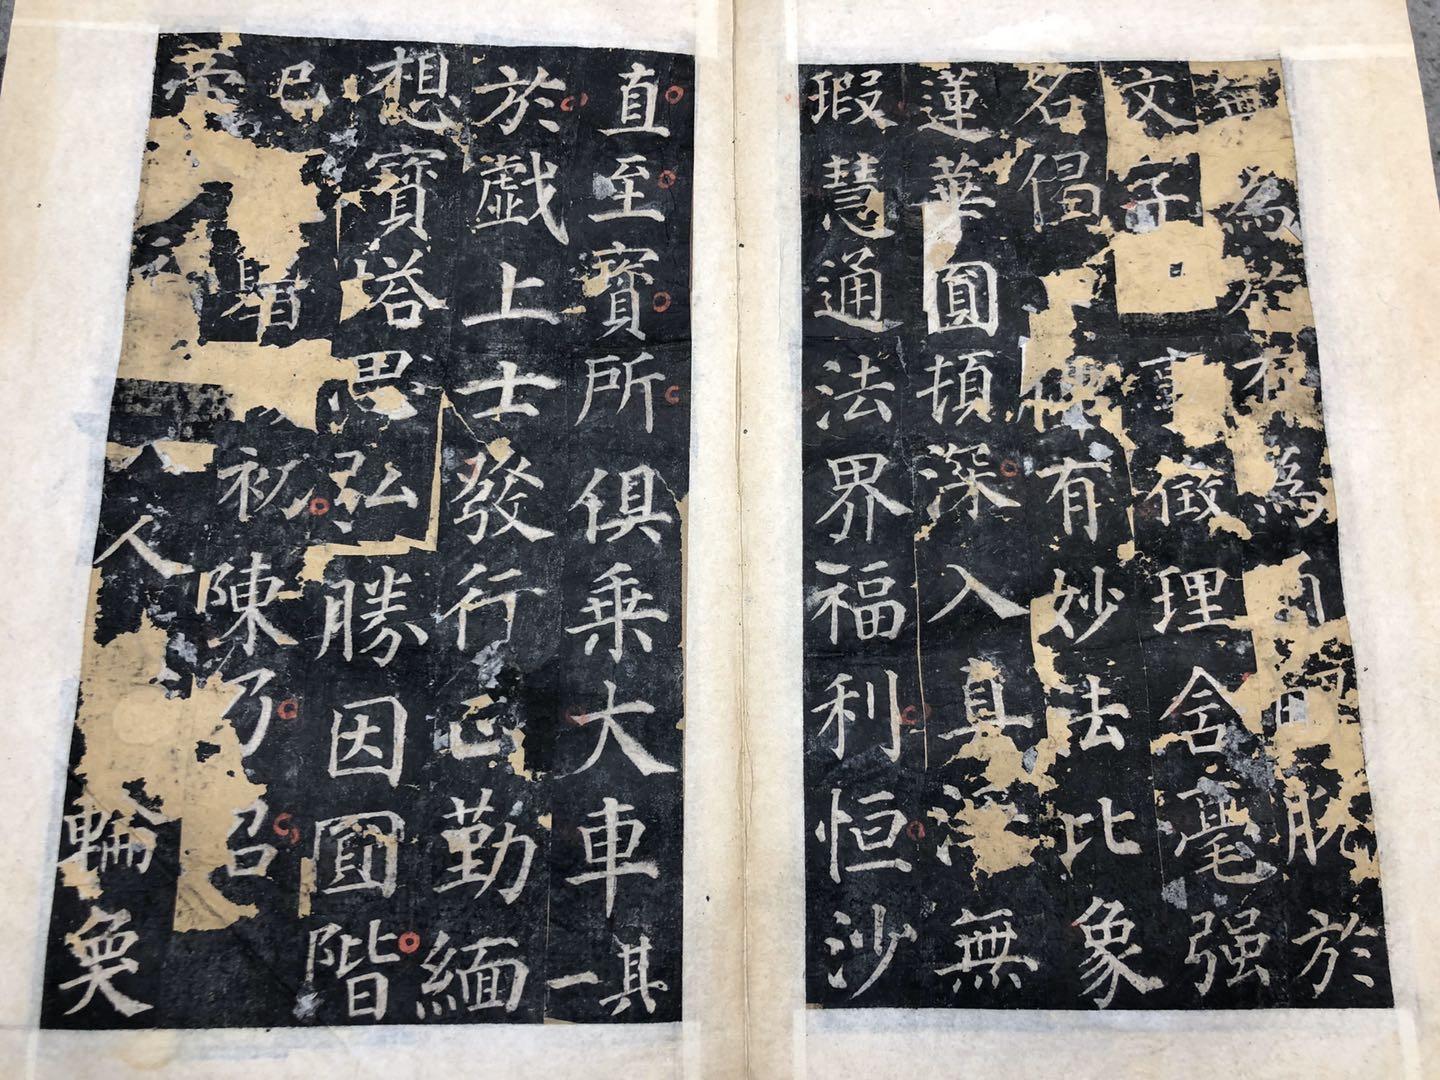 無為於有為脫於
文字事徵理含毫强
名偈佛有妙法比象
蓮華圓頓深入真淨無
瑕慧通法界福利恒沙
直至寶所俱乘大車其一
於戲上士發行正勤緬
想寶塔思弘勝因圓階
已初陳乃
人輪奐